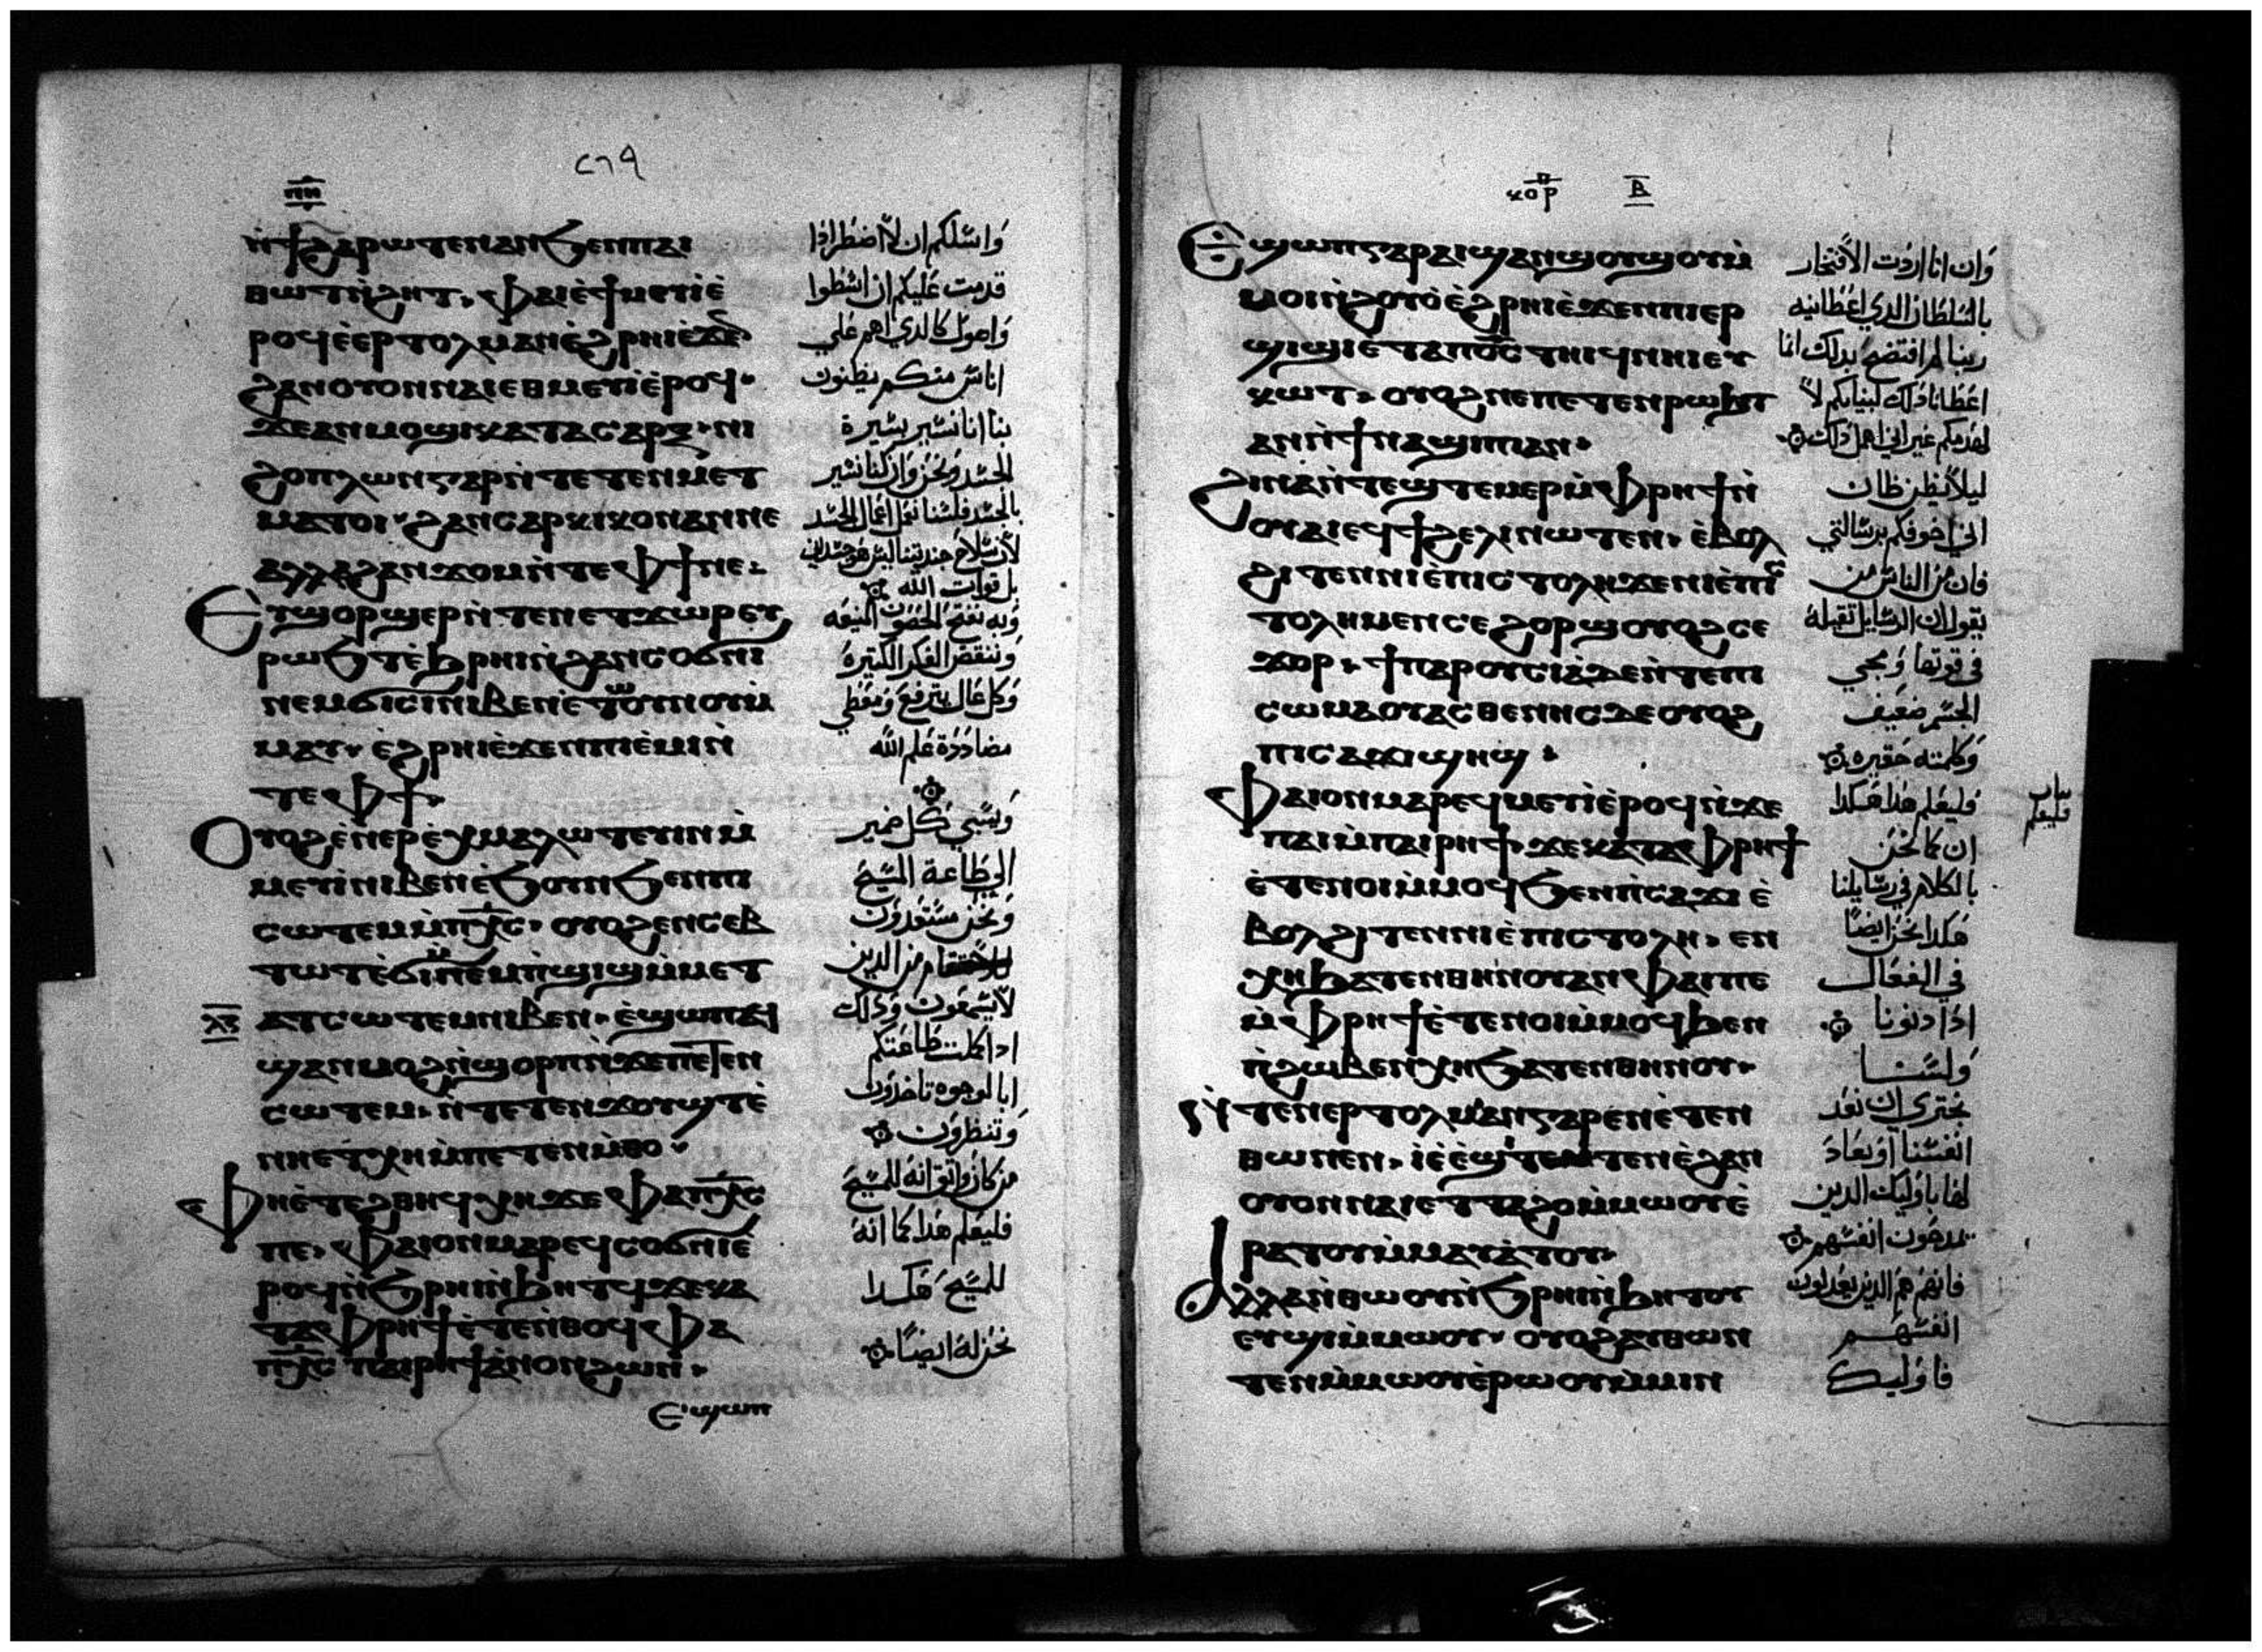 ⲡⲏ
٢٦٩
ⲛ̀ϯϩⲁⲣⲱⲧⲉⲛ ⲁⲛ ϧⲉⲛ ⲡⲁⲓ
ⲑⲱⲧ ⲛ̀ϩⲏⲧ. ⲫⲁⲓ ⲉ̀ϯⲙⲉⲩⲓ ⲉ̀
ⲣⲟϥ ⲉ̀ⲉⲣⲧⲟⲗⲙⲁⲛ ⲉ̀ϩⲣⲏⲓ ⲉ̀ϫⲉⲛ
ϩⲁⲛⲟⲩⲟⲛ ⲛⲁⲓ ⲉⲑⲙⲉⲩⲓ ⲉ̀ⲣⲟϥ.
ϫⲉ ⲁⲛⲙⲟϣⲓ ⲕⲁⲧⲁ ⲥⲁⲣⲝ. ⲛⲓ
ϩⲟⲡⲗⲱⲛ ⲅⲁⲣ ⲛ̀ⲧⲉ ⲧⲉⲛⲙⲉⲧ
ⲙⲁⲧⲟⲓ. ϩⲁⲛⲥⲁⲣⲕⲓⲕⲟⲛ ⲁⲛ ⲛⲉ
ⲁⲗⲗⲁ ϩⲁⲛϫⲟⲙ ⲛ̀ⲧⲉ ⲫϯ ⲛⲉ.
Ⲉⲩϣⲟⲣϣⲉⲣ ⲛ̀ⲧⲉⲛⲉⲧϫⲱⲣ ⲉⲩ
ⲣⲱϧⲧ ⲉ̀ϧⲣⲏⲓ ⲛ̀ϩⲁⲛⲥⲟϭⲛⲓ
ⲛⲉⲙ ϭⲓⲥⲓ ⲛⲓⲃⲉⲛ ⲉ̀ⲧⲱⲟⲩⲛⲟⲩ ⲙ̀
ⲙⲁⲩ. ⲉ̀ϩⲣⲏⲓ ⲉ̀ϫⲉⲛ ⲡⲓⲉ̀ⲙⲓ ⲛ̀
ⲧⲉ ⲫϯ.
Ⲟⲩⲟϩ ⲉ̀ⲛⲉⲣⲉ̀ⲭⲙⲁⲗⲱⲧⲉⲩⲓⲛ ⲙ̀
ⲙⲉⲩⲓ ⲛⲓⲃⲉⲛ ⲉ̀ϧⲟⲩⲛ ϧⲉⲛ ⲡⲓ
ⲥⲱⲧⲉⲙ ⲙ̀ⲡⲭ̅ⲥ. ⲟⲩⲟϩ ⲉⲛⲥⲉⲃ
ⲧⲱⲧ ⲉ̀ϭⲓ ⲙ̀ⲡⲉⲙⲡϣⲓϣ ⲙ̀ⲙⲉⲧ
ⲁⲧⲥⲱⲧⲉⲙ ⲛⲓⲃⲉⲛ. ⲉ̀ϣⲱⲡ ⲁϥ
ϣⲁⲛⲙⲟϩ ⲛ̀ϣⲟⲣⲡ ⲛ̀ϫⲉ ⲡⲉⲧⲉⲛ
ⲥⲱⲧⲉⲙ. ⲛ̀ⲧⲉⲧⲉⲛϫⲟⲩϣⲧ ⲉ̀
ⲛⲏⲉⲧⲭⲏ ⲙ̀ⲡⲉⲧⲉⲛⲙ̀ⲑⲟ.
Ⲫⲏⲉ̀ⲧⲉ ϩⲑⲏϥ ⲭⲏ ϫⲉ ⲫⲁ ⲡⲭ̅ⲥ
ⲡⲉ. ⲫⲁⲓ ⲟⲛ ⲙⲁⲣⲉϥⲥⲟϭⲛⲓ ⲉ̀
ⲣⲟϥ ⲛ̀ϧⲣⲏⲓ ⲛ̀ϧⲏⲧϥ ϫⲉ ⲕⲁ
ⲧⲁ ⲫⲣⲏϯ ⲉ̀ⲧⲉⲛⲑⲟϥ ⲫⲁ
ⲡⲭ̅ⲥ ⲡⲁⲓⲣⲏϯ ⲁ̀ⲛⲟⲛ ϩⲱⲛ.
ⲉϣⲱⲡ
واسلكم ان لا اضطر اذا
قدمت عليكم ان اسطوا
واصول كالدي اهم علي
اناس منكم يظنون
بنا انا نسير بسيرة
الجسد ونحن وان كنا نسير
بالجسد فلسنا نعمل اعمال الجسد
لان سلاح جنديتنا ليس هو جسداني
بل قوات الله
وبه نفتح الحصون المنيعه
وننقض الفكر الكتيره
وكل عال يترفع ومعطي
مضاددة علم الله
ويسبي كل ضمير
الي طاعة المسيح
ونحن مستعدون
للانتقام من الدين
لا يسمعون ودلك
ادا كملت طاعتكم
ابا لوجوه تاخدون
وتنظرون
من كان واتق انه للمسيح
فليعلم هدا كما انه
للمسيح هكدا
نحن له ايضًا
ⲕⲟⲣ ⲃ
Ⲉϣⲱⲡ ⲅⲁⲣ ⲁⲓϣⲁⲛϣⲟⲩϣⲟⲩ ⲙ̀
ⲙⲟⲓ ⲛ̀ϩⲟⲩⲟ̀ ⲉ̀ϩⲣⲏⲓ ⲉ̀ϫⲉⲛ ⲡⲓⲉⲣ
ϣⲓϣⲓ ⲉⲧⲁ ⲡⲟ̅ⲥ̅ ⲧⲏⲓϥ ⲛⲏⲓ ⲉⲩ
ⲕⲱⲧ. ⲟⲩⲟϩ ⲛⲉⲡⲉⲧⲉⲛⲣⲱϧⲧ
ⲁⲛ ⲛ̀ϯⲛⲁϣⲓⲡⲓ ⲁⲛ.
ϩⲓⲛⲁ ⲛ̀ⲧⲉϣⲧⲉⲙⲉⲣ ⲙ̀ⲫⲣⲏϯ ⲛ̀
ⲟⲩⲁⲓ ⲉϥϯϩⲉⲗⲓ ⲛⲱⲧⲉⲛ. ⲉ̀ⲃⲟⲗ
ϩⲓⲧⲉⲛ ⲛⲓⲉ̀ⲡⲓⲥⲧⲟⲗⲏ ϫⲉ ⲛⲓⲉ̀ⲡⲓⲥ
ⲧⲟⲗⲏ ⲙⲉⲛ ⲥⲉϩⲟⲣϣ ⲟⲩⲟϩ ⲥⲉ
ϫⲟⲣ. ϯⲡⲁⲣⲟⲩⲥⲓⲁ̀ ⲇⲉ ⲛ̀ⲧⲉ ⲡⲓ
ⲥⲱⲙⲁ ⲟⲩⲁⲥⲑⲉⲛⲏⲥ ⲇⲉ ⲟⲩⲟϩ
ⲡⲓⲥⲁϫⲓ ϣⲏϣ.
Ⲫⲁⲓ ⲟⲛ ⲙⲁⲣⲉϥⲙⲉⲩⲓ ⲉ̀ⲣⲟϥ ⲛ̀ϫⲉ
ⲡⲁⲓ ⲙ̀ⲡⲁⲓⲣⲏϯ. ϫⲉ ⲕⲁⲧⲁ ⲫⲣⲏϯ
ⲉ̀ⲧⲉⲛⲟⲓ ⲙ̀ⲙⲟϥ ϧⲉⲛ ⲡⲓⲥⲁϫⲓ ⲉ̀
ⲃⲟⲗ ϩⲓⲧⲉⲛ ⲛⲓⲉ̀ⲡⲓⲥⲧⲟⲗⲏ. ⲉⲛ
ⲭⲏ ϧⲁⲧⲉⲛ ⲑⲏⲛⲟⲩ ⲁⲛ ⲫⲁⲓ ⲡⲉ
ⲙ̀ⲫⲣⲏϯ ⲉ̀ⲧⲉⲛⲟⲓ ⲙ̀ⲙⲟϥ ϧⲉⲛ
ⲡ̀ϩⲱⲃ ⲉⲛⲭⲏ ϧⲁⲧⲉⲛ ⲑⲏⲛⲟⲩ.
ⲧⲉⲛⲉⲣⲧⲟⲗⲙⲁⲛ ⲅⲁⲣ ⲉⲛ ⲉ̀ⲧⲉⲛ
ⲑⲱⲛⲉⲛ. ⲓⲉ̀ ⲉ̀ϣⲧⲉⲛⲧⲉⲛ ⲉ̀ϩⲁⲛ
ⲟⲩⲟⲛ ⲛⲁⲓ ⲉⲧⲧⲁϩⲟ ⲙ̀ⲙⲱⲟⲩ ⲉ̀
ⲣⲁⲧⲟⲩ ⲙ̀ⲙⲁⲩⲁ̀ⲧⲟⲩ.
Ⲁⲗⲗⲁ ⲛ̀ⲑⲱⲟⲩ ⲛ̀ϧⲣⲏⲓ ⲛ̀ϧⲏⲧⲟⲩ
ⲉⲩϣⲓ ⲙ̀ⲙⲱⲟⲩ. ⲟⲩⲟϩ ⲁⲩⲑⲱⲛ
ⲧⲉⲛ ⲙ̀ⲙⲱⲟⲩ ⲉ̀ⲣⲱⲟⲩ ⲙ̀ⲙⲓⲛ
وان انا اردت الافتخار
بالسلطان الدي اعطانيه
ربنا لم افتضح بدلك انما
اعطانا دلك لبنيانكم لا
لهدمكم غير اني اهمل دلك
ليلا يظن ظان
اني اخوفكم برسالتي
فان من الناس من
يقول ان الرسايل تقيله
في قوتها ومجي
الجسم ضعيف
وكلمته حقيره
فليعلم هدا هكدا
ان كما نحن
بالكلام في رسايلنا
هكدا نحن ايضًا
في الفعال
ادا دنونا
ولسنا
نجتري ان نعد
انفسنا او نعاد
لها باوليك الدين
يمدحون انفسهم
فانهم هم الدين يعدلون
انفسهم
فاوليك